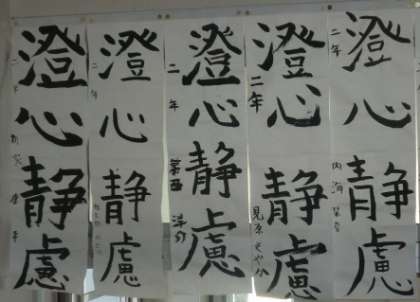 澄心静慮
二年
澄心静慮
二年
澄心静慮
二年
澄心静慮
二年
澄心静慮
二年